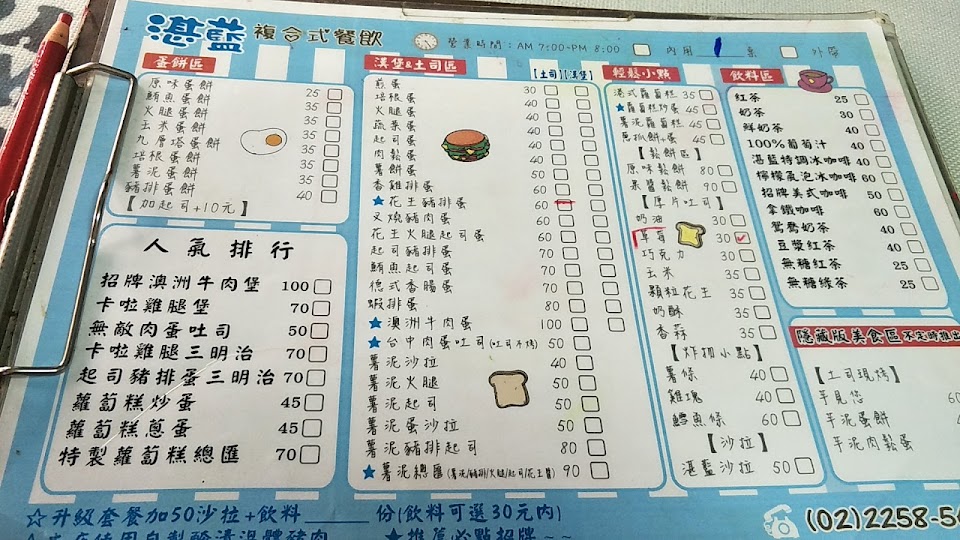 湛藍 複合式餐飲
營業時間：AM 7:00~PM 8:00 內用 桌 外帶
蛋餅區
原味蛋餅 25
鮪魚蛋餅 35
火腿蛋餅 35
玉米蛋餅 35
九層塔蛋餅 35
培根蛋餅 35
薯泥蛋餅 35
豬排蛋餅 40
【加起司+10元】
人氣排行
招牌澳洲牛肉堡 100
卡啦雞腿堡 70
無敵肉蛋吐司 50
卡啦雞腿三明治 70
起司豬排蛋三明治 70
蘿蔔糕炒蛋 45
蘿蔔糕蔥蛋 45
特製蘿蔔糕總匯 70
漢堡&土司區 【土司】【漢堡】
煎蛋 30
培根蛋 40
火腿蛋 40
蔬菜蛋 40
起司蛋 40
肉鬆蛋 40
薯泥蛋 50
香雞排蛋 60
★花王豬排蛋 60
叉燒豬肉蛋 60
花王火腿起司蛋 60
起司豬排蛋 70
鮪魚起司蛋 70
德式香腸蛋 70
蝦排蛋 80
★澳洲牛肉蛋 100
★台中肉蛋吐司(吐司不烤) 50
薯泥沙拉 40
薯泥火腿 50
薯泥起司 50
薯泥蛋沙拉 50
薯泥豬排起司 80
★薯泥總匯(薯泥/豬排/火腿/起司/花生醬) 90
輕鬆小點
港式蘿蔔糕 35
★蘿蔔糕炒蛋 45
薯泥蘿蔔糕 45
蔥抓餅+蛋 45
【鬆餅區】
原味鬆餅 80
果醬鬆餅 90
【厚片吐司】
奶油 30
草莓 30
巧克力 30
玉米 35
顆粒花生 35
奶酥 35
香蒜 35
【炸物小點】
薯條 40
雞塊 40
鱈魚條 60
【沙拉】
湛藍沙拉 50
飲料區
紅茶 25
奶茶 30
鮮奶茶 40
100%葡萄汁 40
湛藍特調冰咖啡 40
檸檬氣泡冰咖啡 60
招牌美式咖啡 50
拿鐵咖啡 60
鴛鴦奶茶 40
豆漿紅茶 40
無糖紅茶 25
無糖綠茶 25
隱藏版美食區 不定時推出
【土司現烤】
芋見您 60
芋泥蛋餅
芋泥肉鬆蛋
☆升級套餐加50沙拉+飲料 份(飲料可選30元內)
(02)2258-56